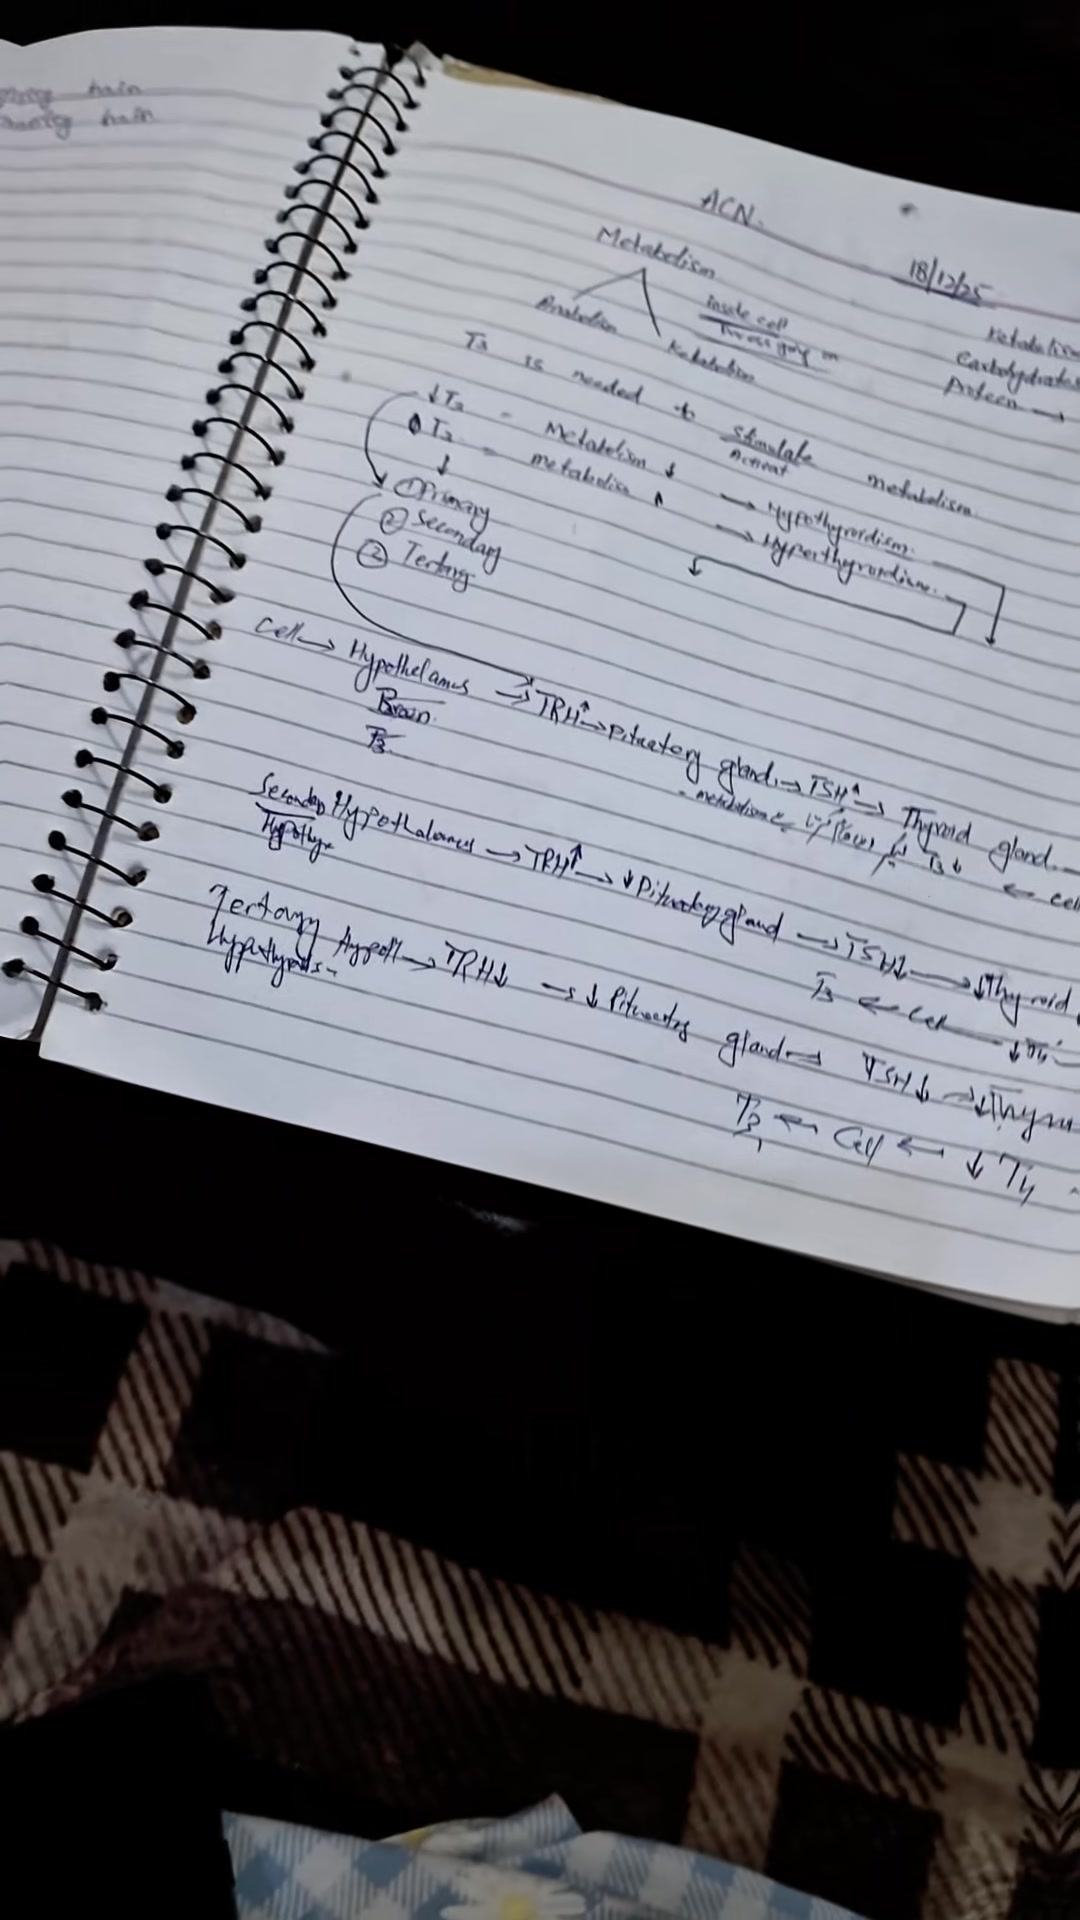 hain
hain
ACN.
18/12/25
Metabolism
Anabolism
inside cell
Ketabolism
Ketabolism
Carbohydrates
Protein →
T3 is needed to stimulate metabolism
Activat
↓T3 - Metabolism ↓ → Hypothyroidism.
T3 = metabolism ↑ → Hyperthyroidism.
↓
① Primary
② Secondary
② Tertary
Cell → Hypothelamus → TRH↑ → Pituetory gland. → TSH↑ → Thyroid gland.
Brain.
T3.
metabolism
T3 ↓ ← cell
Secondary Hypothalamus → TRH↑ → ↓ Pituetary gland → TSH↓ → ↓Thyroid
Hypothy
T3 ← Cell ← ↓T4
Tertary Hypoth → TRH↓ → ↓ Pituetary gland → TSH↓ → ↓Thyro
T3 ← Cell ← ↓ T4